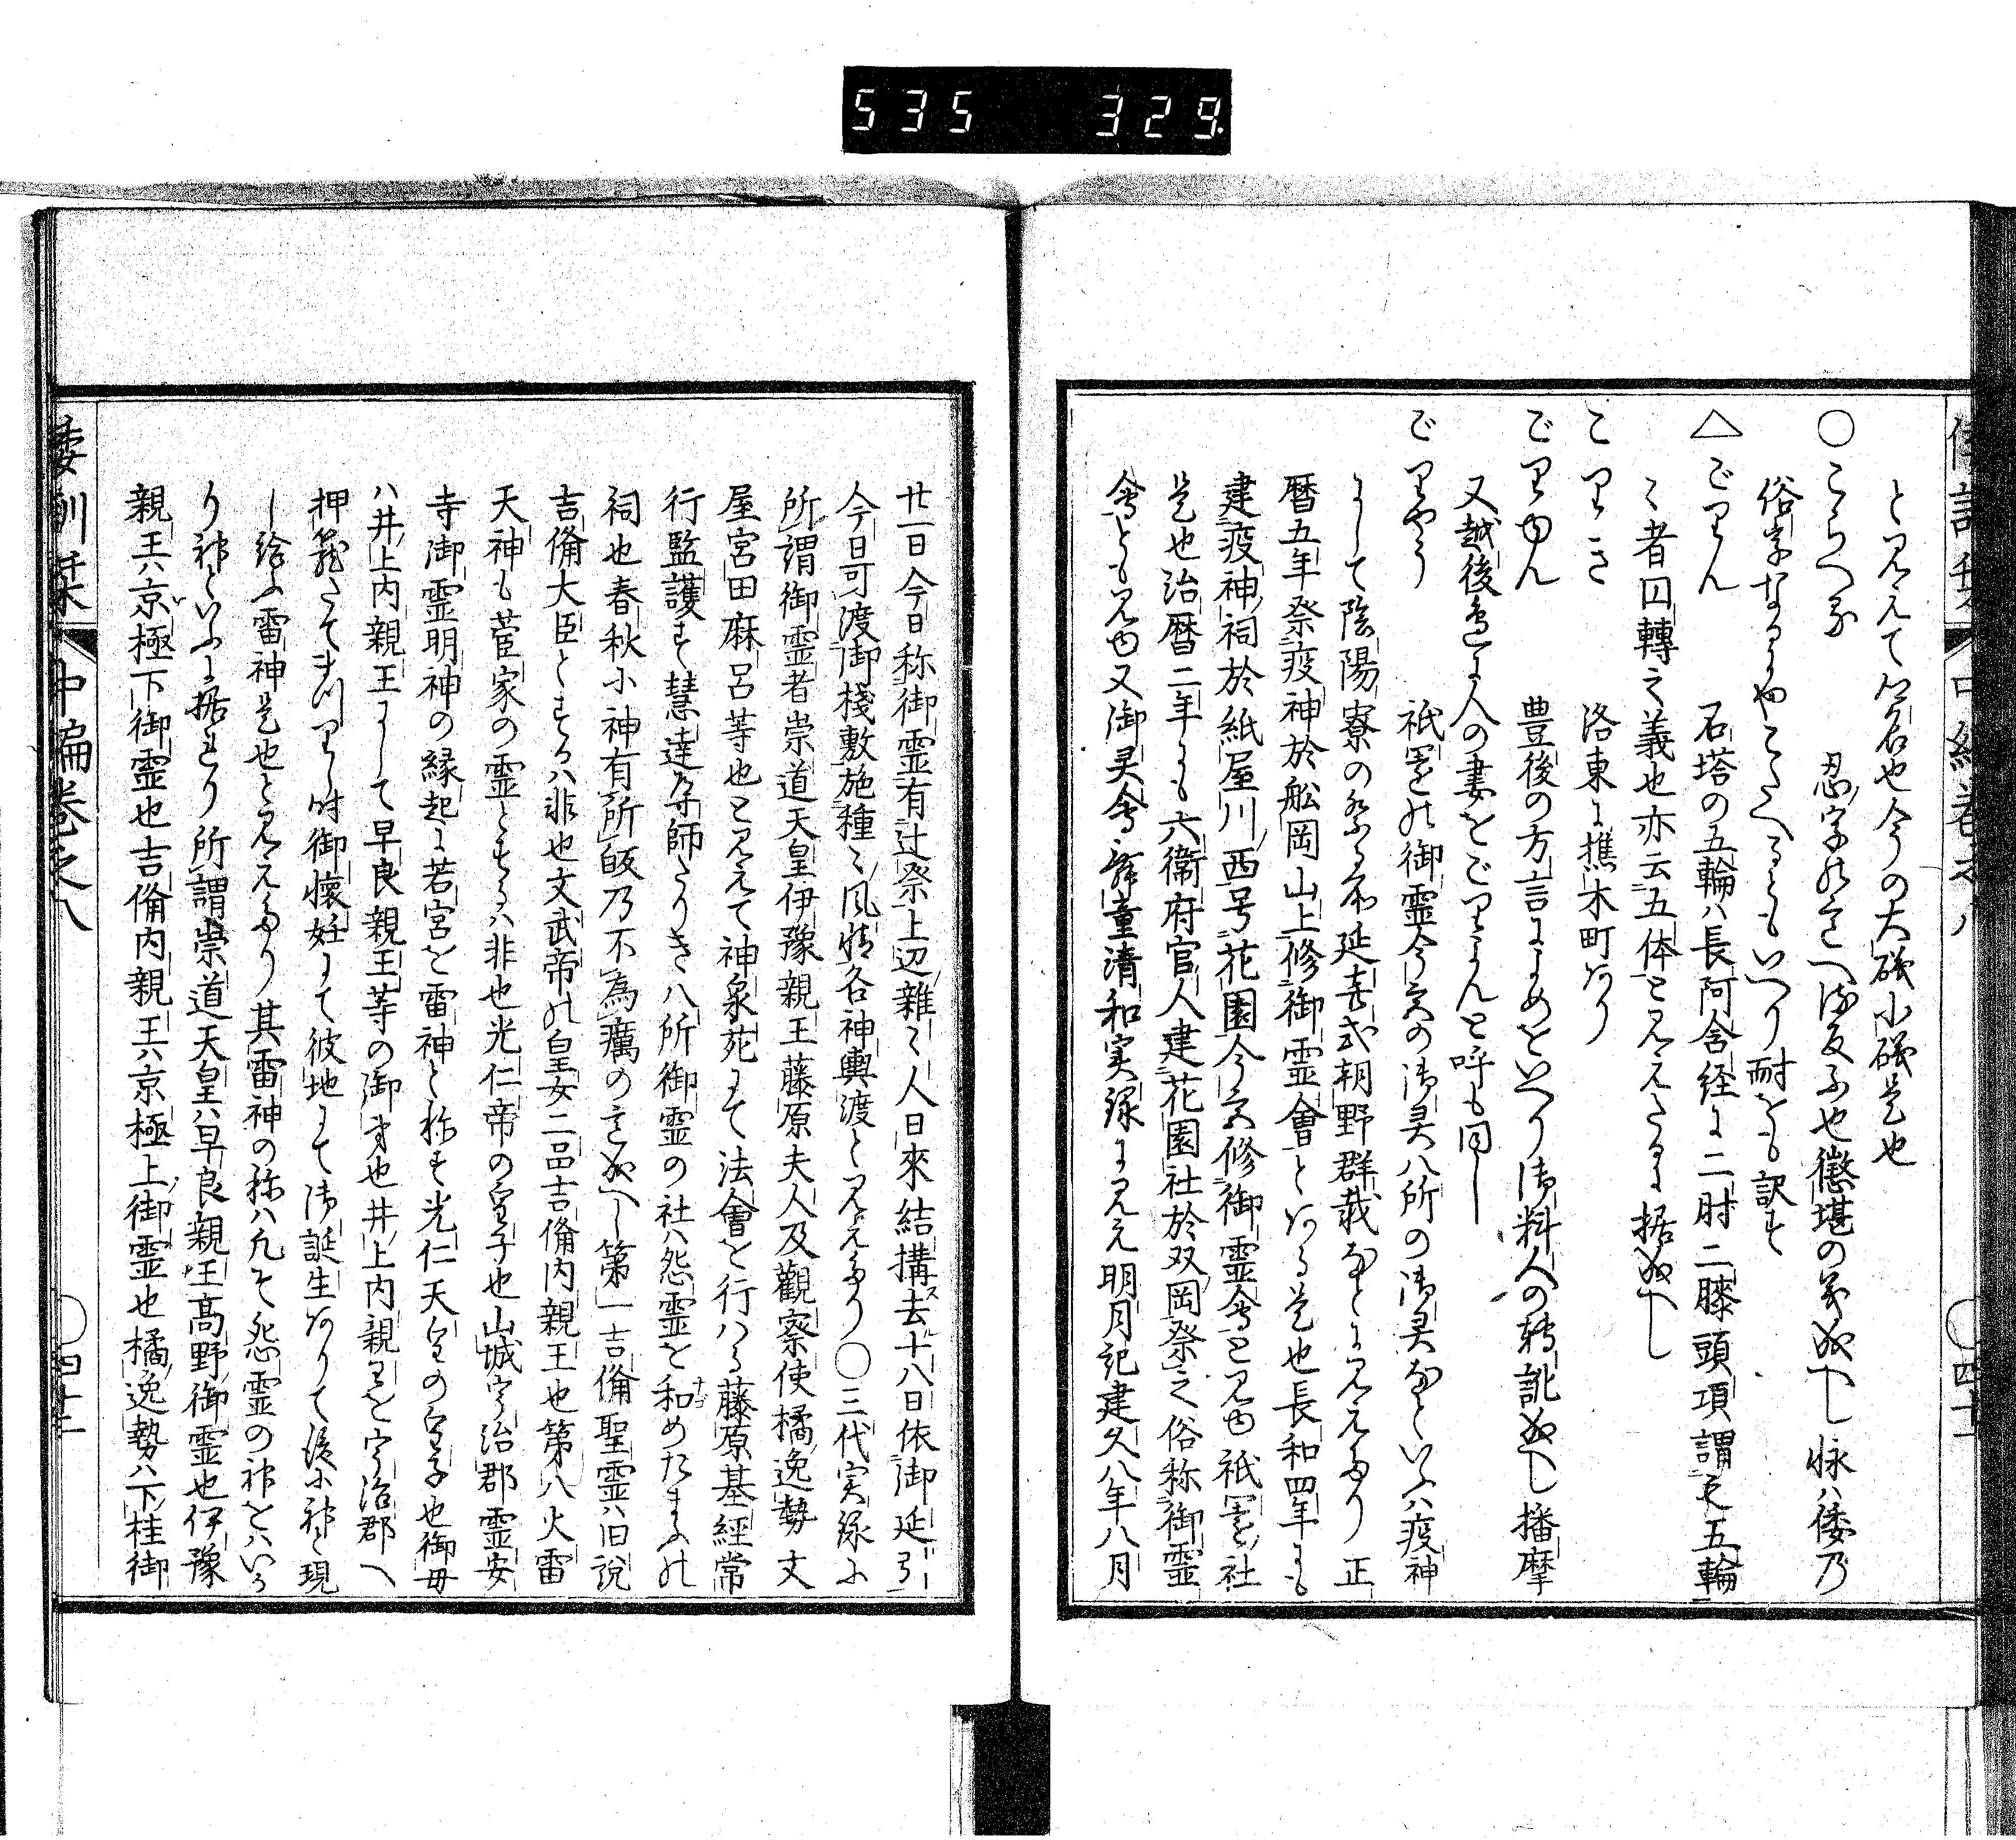 535 329.
とみえて石名也今の大磯小磯是也
○こらへる 忍字をこらへ
俗字なるにやこたへるともいへり耐をも訳す
△ごりん 石塔の五輪ハ長阿含経に二肘二膝頭項謂之五輪
ミ者囚轉之義也亦云五体とみえたるに据ぬべし
こりき 洛東に樵木町あり
ごりゆん 豊後の方言によめをいへり御料人の転訛ぬべし播摩
又越後邊に人の妻をごりよんと呼も同し
ごりやう 祇園の御霊今宮の御灵八所の御灵なといふハ疫神
にして陰陽寮の祭る所延喜式朝野群載なとにみえたり正
暦五年祭疫神於舩岡山上修御霊會とある是也長和四年にも
建疫神祠於紙屋川西号花園今宮修御霊會とみゆ祇園社
是也治暦二年にも六衛府官人建花園社於双岡祭之俗称御霊
會ともみゆ又御灵會舞童清和実録にみえ明月記建久八年八月
廿一日今日称御霊有辻祭上辺雑ミ人日來結構去十八日依御延引
今日可渡御棧敷施種ミ風情各神輿渡とみえたり○三代実録に
所謂御霊者崇道天皇伊豫親王藤原夫人及觀察使橘逸勢文
屋宮田麻呂等也とみえて神泉苑にて法會を行ハる藤原基經常
行監護す慧達律師たりき八所御霊の社ハ怨霊を和めたまふの
祠也春秋に神有所皈乃不為癘の意ぬべし第一吉備聖霊ハ旧説
吉備大臣とするハ非也文武帝の皇女二品吉備内親王也第八火雷
天神も菅家の霊とするハ非也光仁帝の皇子也山城宇治郡霊安
寺御霊明神の縁起に若宮を雷神と称す光仁天皇の皇子也御母
ハ井上内親王にして早良親王等の御弟也井上内親王を宇治郡へ
押籠たてまつりし時御懐妊にて彼地にて御誕生ありて後に神と現
し給ふ雷神是也とみえたり其雷神の称ハ凡そ怨霊の神をハいか
り神といふに据れり所謂崇道天皇ハ早良親王髙野御霊也伊豫
親王ハ京極下御霊也吉備内親王ハ京極上御霊也橘逸勢ハ下桂御
倭訓栞 中編巻之八 四十二